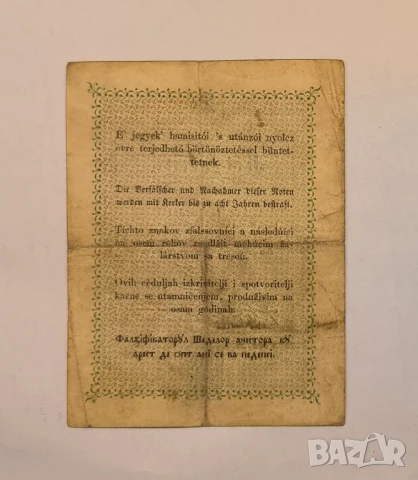 E' jegyek' hamisitói 's utánzói nyolcz
évre terjedhető börtönöztetéssel büntet-
tetnek.
Die Verfälscher und Nachahmer dieser Noten
werden mit Kerker bis zu acht Jahren bestraft.
Tichto znakov zfalssovníci a následúci
na osem rokov
žalárstvom sa trescú.
Ovih céduljah izkrivitelji i spotvoritelji
kazne se utamničenjem, produživim na
osam godinah.
Фалций
де опт ані се ва
bazar